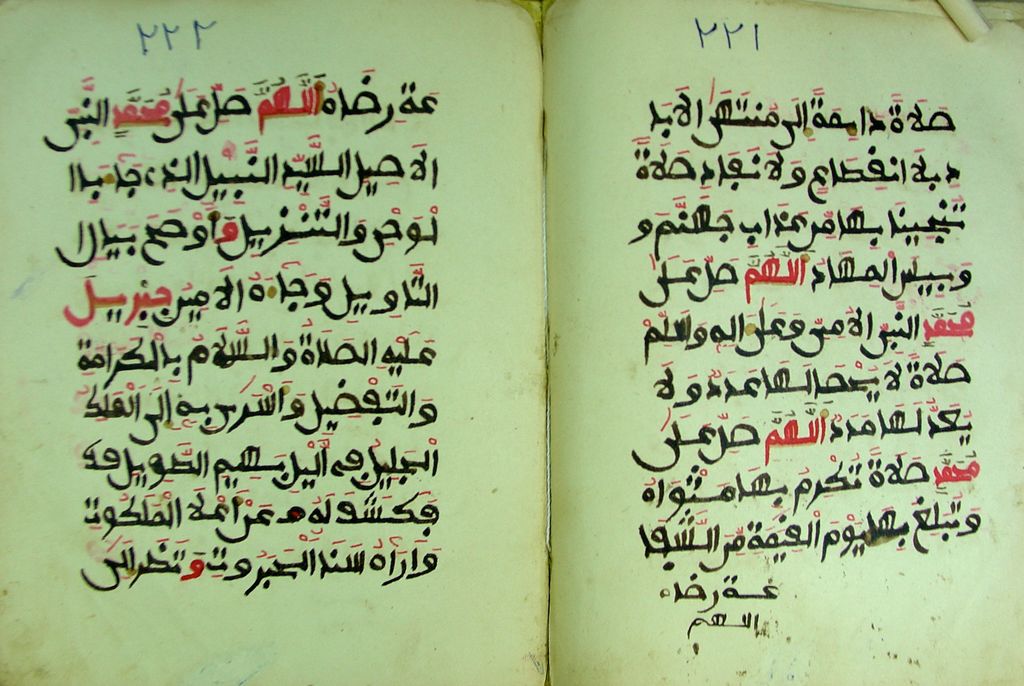 ٢٢١
صلاة دائمة إلى منتهى الابا
د بلا انقطاع ولا نفاد صلاة
تنجينا بها من عذاب جهنم و
وبيس المهاد اللهم صل على
محمد النبي الامي وعلى اله وسلم
صلاة لا يحصا لها عدد ولا
يعد لها مدد اللهم صل على
محمد صلاة تكرم بها مثواه
وتبلغ بها يوم القيمة من الشفا
عة رضاه
اللهم
٢٢٢
عة رضاه اللهم صل على محمد النبي
الاصيل السيد النبيل الذي جاء با
لوحي والتنزيل واوضح بيان
التاويل وجاءه الامين جبريل
عليه الصلاة والسلام بالكرامة
والتفضيل واسرى به الى الملك
الجليل في اليل بهيم الطويل
فكشف له عن اعلا الملكوت
واراه سنا الجبروت ونظر الى